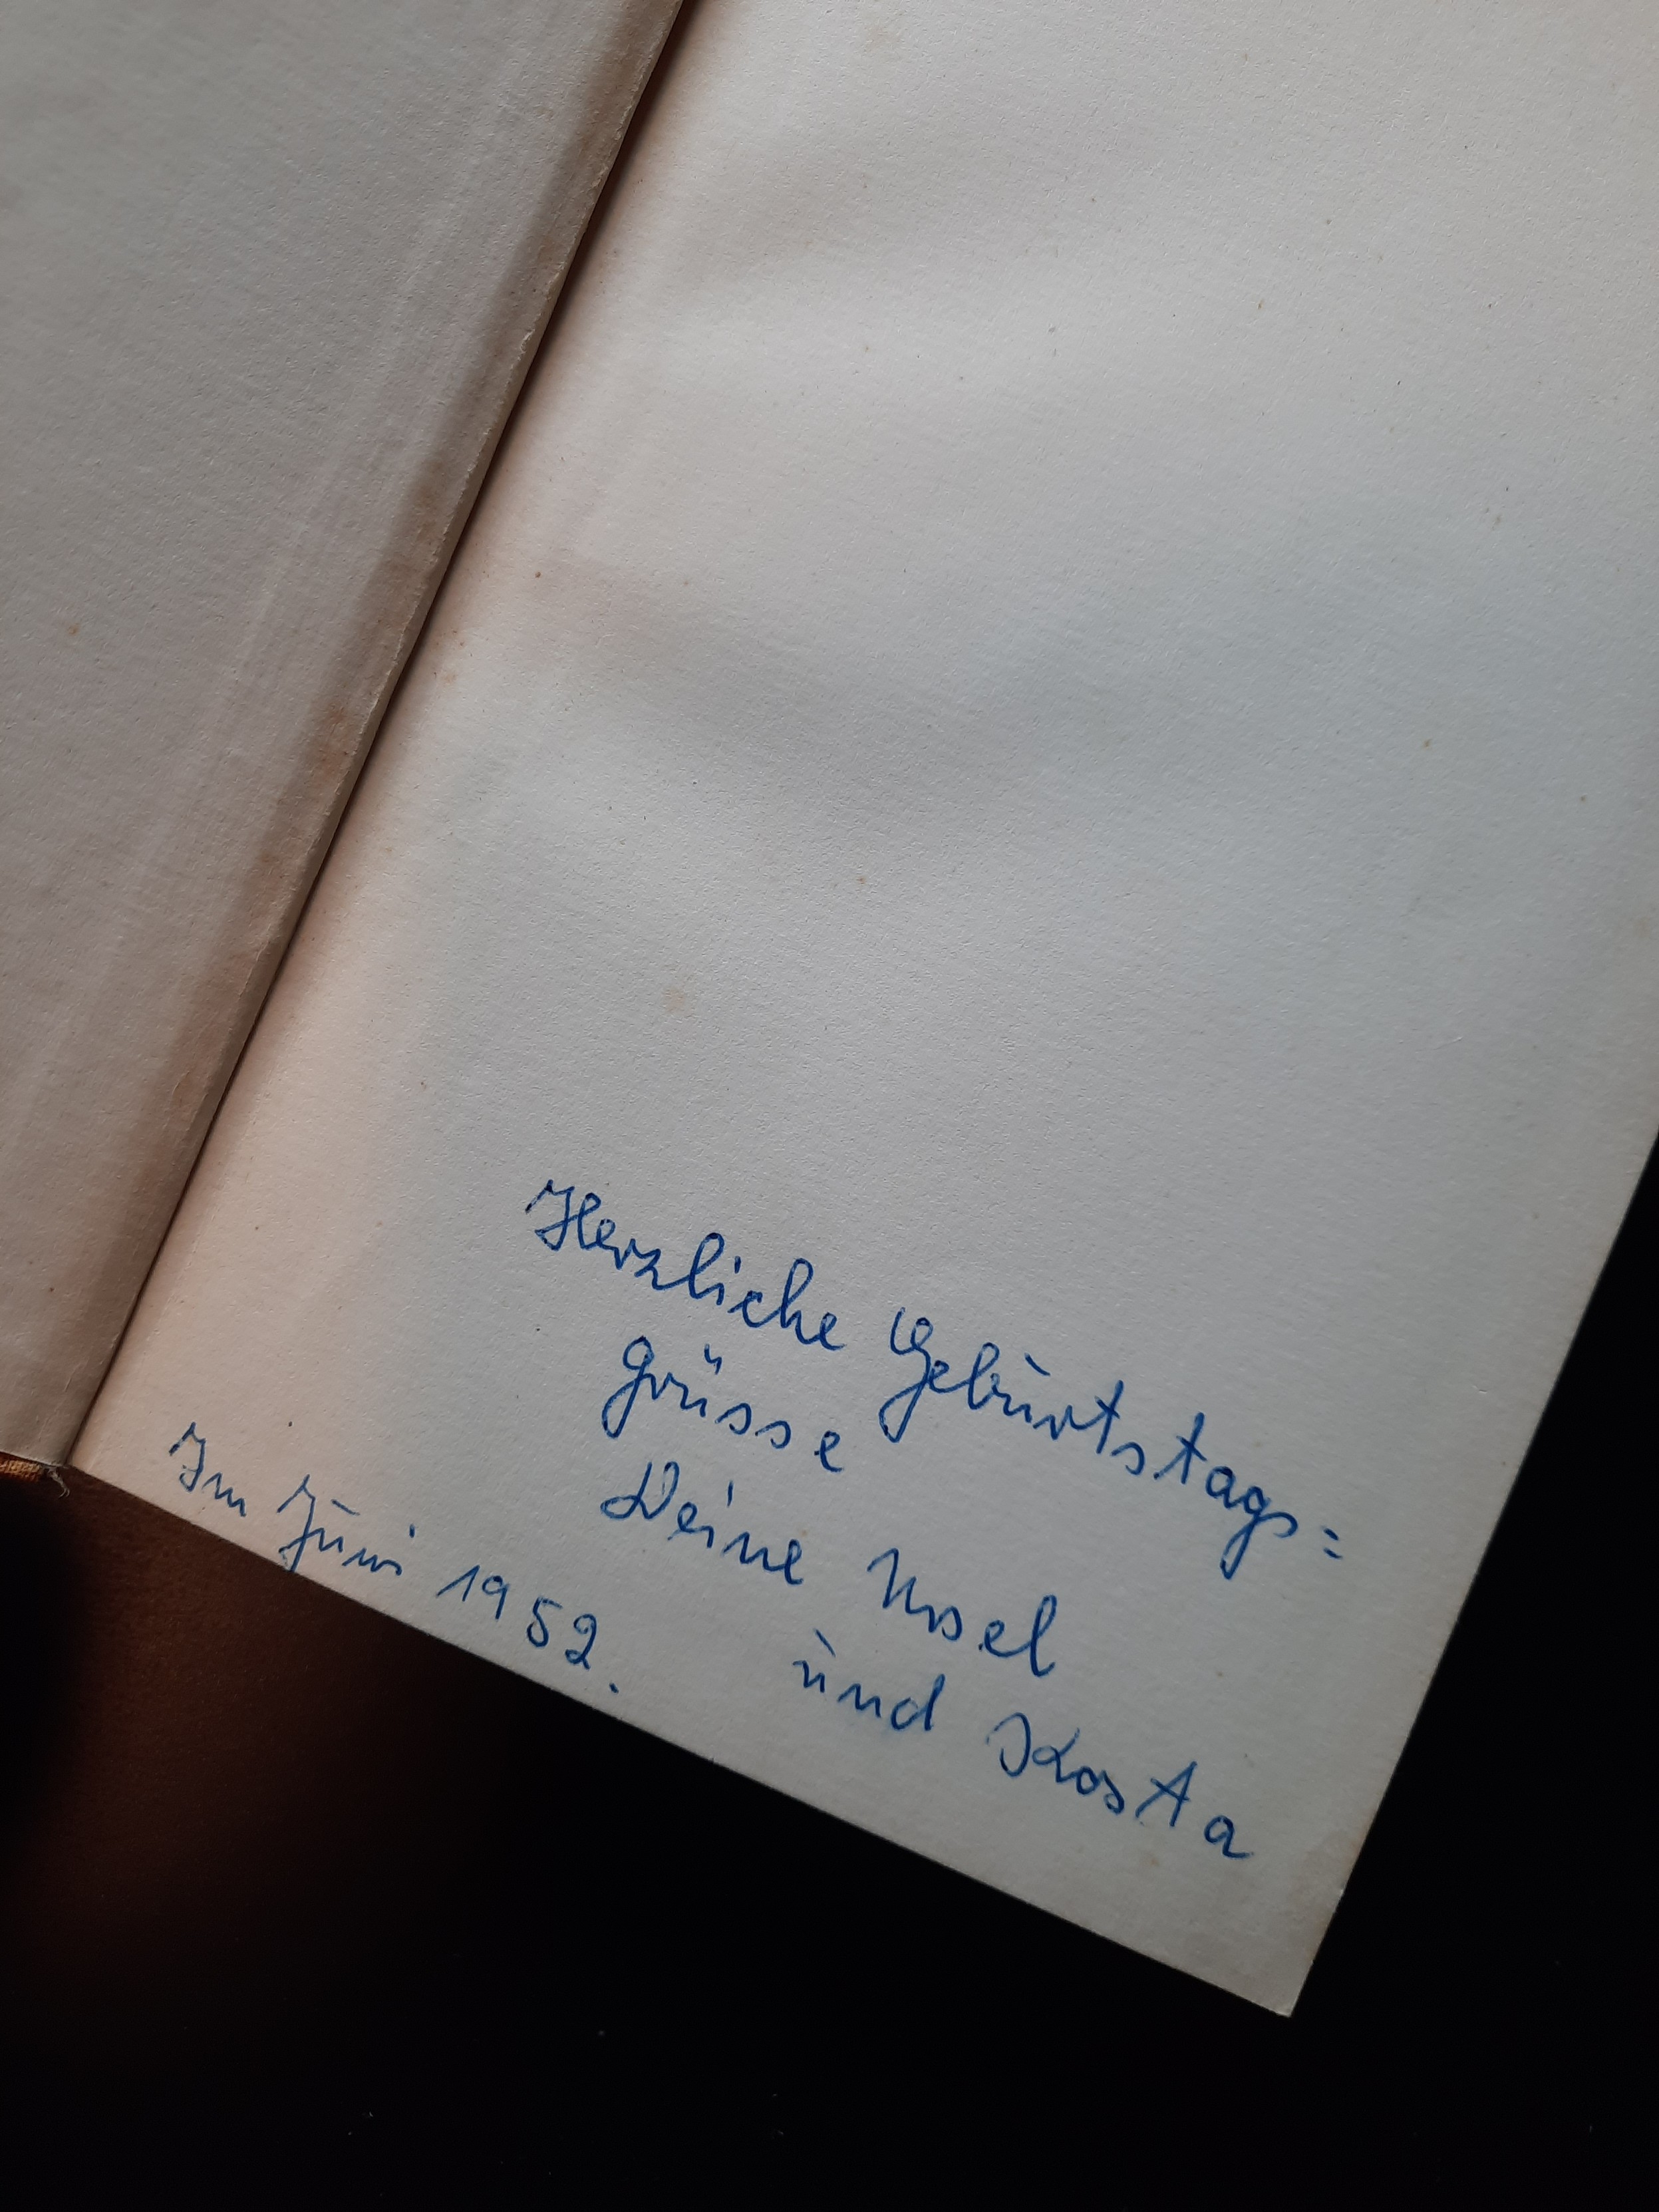 Herzliche Geburtstags=
grüsse
Deine Ursel
und Kosta
Im Juni 1952.